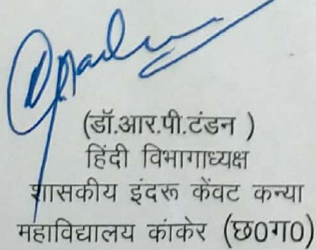 (डॉ.आर.पी.टंडन )
हिंदी विभागाध्यक्ष
शासकीय इंदरू केंवट कन्या
महाविद्यालय कांकेर (छ0ग0)